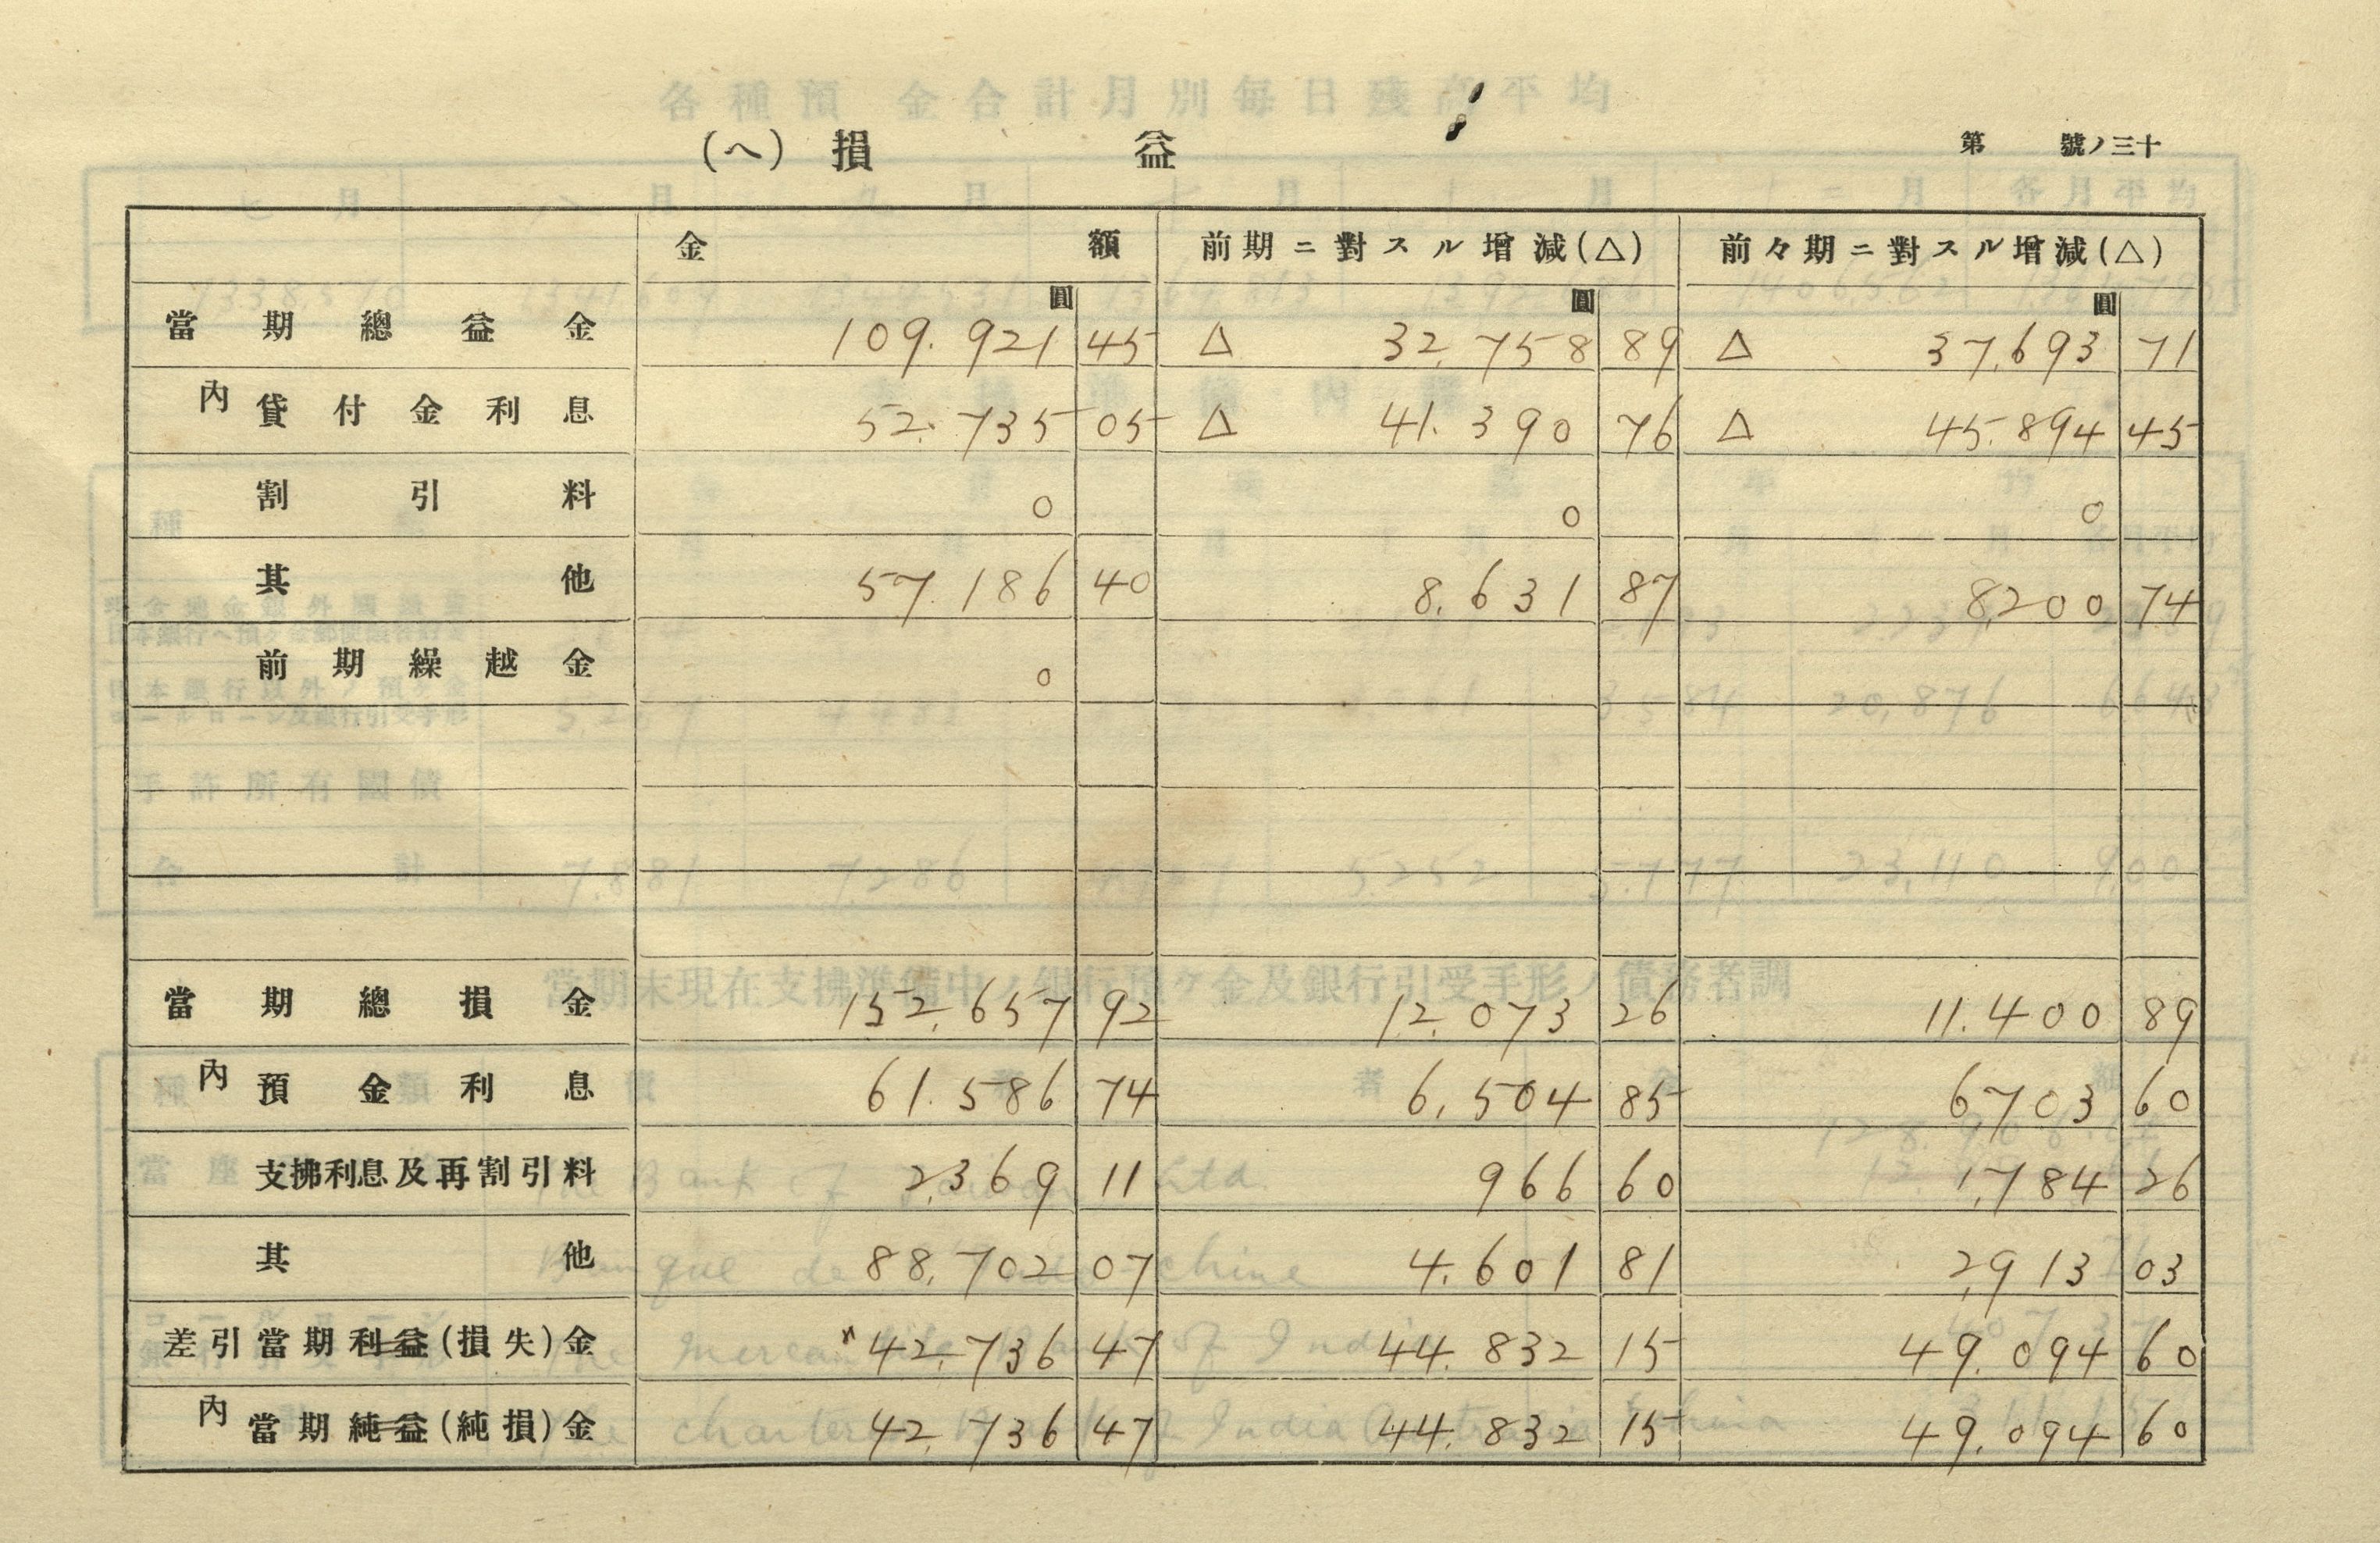 (ヘ) 損 益
第 號ノ三十
金 額 前期ニ對スル增減(△) 前々期ニ對スル增減(△)
圓 圓 圓
當期總益金 109.921 45 △ 32.758 89 △ 37.693 71
內 貸付金利息 52.735 05 △ 41.390 76 △ 45.894 45
割引料 0 0 0
其他 57.186 40 8.631 87 8,200 74
前期繰越金 0
當期總損金 152.657 92 12.073 26 11.400 89
內 預金利息 61.586 74 6,504 85 6703 60
支拂利息及再割引料 2,369 11 966 60 1,784 26
其他 88,702 07 4.601 81 2,913 03
差引當期利益(損失)金 42.736 47 44.832 15 49.094 60
內 當期純益(純損)金 42.736 47 44.832 15 49.094 60